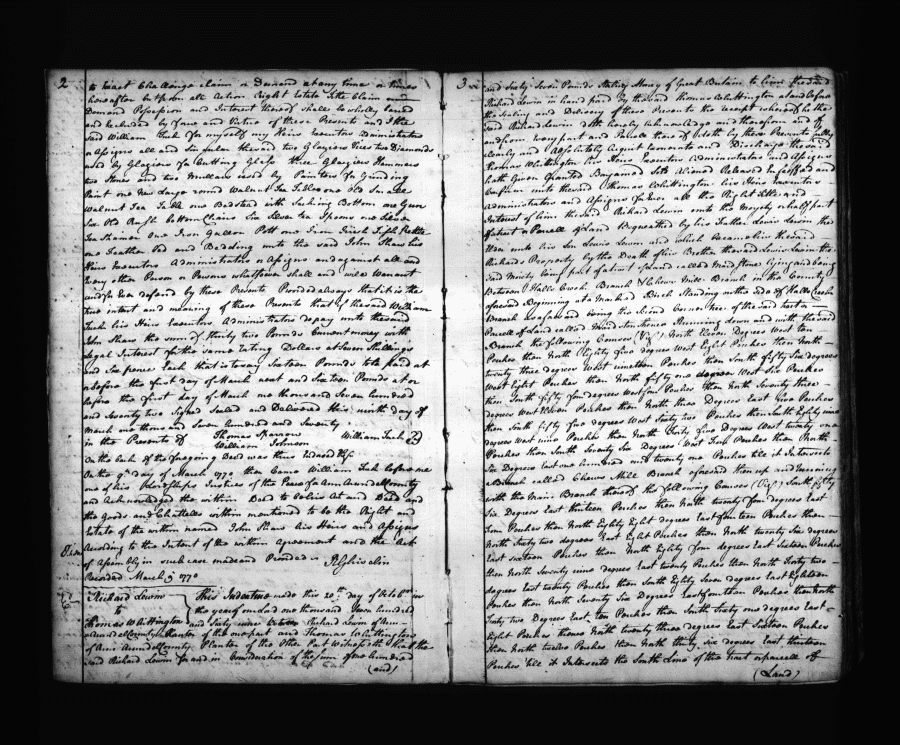 2
to Exact Challenge claim or Demand at any time or times
hereafter but from all Action Right Estate Title Claim and
Demand Possession and Interest thereof shall be wholly barred
and excluded by force and Virtue of these Presents and I the
said William Tuck for myself my Heirs Executors Administrators
& Assigns all and Singular the said two Glaziers Vices two Diamonds
used by Glaziers for Cutting Glass three Glaziers Hammers
two Stones and two Mullers used by Painters for Grinding
Paint one New Large round Walnut Tea Table one old Square
Walnut Tea Table one Bedstead with Sacking Bottom one Gun
Six Old Rush bottom Chairs Six Silver Tea Spoons one Silver
Tea Strainer One Iron Gallon Pott one Iron Fish Kettle
one Feather Bed and Bedding unto the said John Shaw his
Heirs Executors Administrators or Assigns and against all and
Every other Person or Persons whatsoever shall and will Warrant
and for Ever defend by these Presents Provided always that it is the
true intent and meaning of these Presents that if the said William
Tuck his Heirs Executors Administrators do pay unto the said
John Shaw the sum of thirty two Pounds Current money with
Legal Interest for the same rating Dollars at Seven Shillings
and Six pence Each that is to say Sixteen Pounds to be paid at
or before the first day of March next and Sixteen Pounds at or
before the first day of March one thousand Seven hundred
and Seventy two Signed Sealed and Delivered this ninth day of
March one thousand Seven hundred and Seventy
in the Presents of Thomas Sparrow William Tuck
William Johnson
On the back of the foregoing Deed was thus Endorsed Viz
On the 9th day of March 1770 then Came William Tuck before me
one of his Lordships Justices of the Peace for Ann Arundel County
and Acknowledged the within Deed to be his Act and Deed and
the Goods and Chattells within mentioned to be the Right and
Estate of the within named John Shaw his Heirs and Assigns
According to the Intent of the within Agreement and the Act
of Assembly in such case made and Provided
Recorded March 9 1770
Richard Lewin
to
Thomas Whittington
This Indenture made this 20th day of in
the year of our Lord one thousand Seven hundred
and Sixty nine between Richard Lewin of Ann
Arundel County Planter of the one part and Thomas Whittington
of Ann Arundel County Planter of the Other Part Witnesseth that the
said Richard Lewin for and in Consideration of the sum of one hundred
(and)
3
and Sixty Seven Pounds Sterling Money of Great Britain to him the said
Richard Lewin in hand paid by the said Thomas Whittington at and before
the Sealing and Delivery of these Presents the Receipt whereof he the
said Richard Lewin doth hereby acknowledge and thereof and of
and from every part and Parcell thereof doth by these Presents fully
clearly and absolutely Acquit Exonerate and Discharge the said
Thomas Whittington his Heirs Executors Administrators and Assigns
hath Given Granted Bargained Sold Aliened Released Enfeoffed and
Confirm unto the said Thomas Whittington his Heirs Executors
Administrators and Assigns forever all the Right Title and
Interest of him the said Richard Lewin unto the Moyety or half part
of a tract or Parcell of Land Bequeathed by his Father Lewis Lewin the
Elder unto his Son Lewis Lewin and which became his the said
Richards Property by the Death of his Brother the said Lewis Lewin the
said Moiety being part of a tract of Land called Maidstone lying and being
Between Halls Creek Branch & Chews Mill Branch in the County
aforesaid Beginning at a Marked Birch Standing on the side of Halls Creek
Branch aforesaid being the third Corner tree of the said tract or
Parcell of Land called Maidstone thence Running down and with the said
Branch the following Courses (Viz) North Eleven Degrees West ten
Perches then North Eighty five degrees West Eight Perches then North
twenty three degrees West nineteen Perches then South fifty Six degrees
West Eight Perches then North fifty one degrees West Six Perches
then South fifty four degrees West four Perches then North Seventy three
degrees West Eleven Perches then North three Degrees East nine Perches
then South fifty two degrees West Sixty two Perches then South Eighty nine
degrees West nine Perches then North thirty five Degrees West twenty one
Perches then South Seventy Six Degrees West Ten Perches then North
Six Degrees East one hundred and twenty one Perches till it Intersects
a Branch called Chews Mill Branch aforesaid then up and running
with the Main Branch thereof the following Courses (Viz) South fifty
Six Degrees East thirteen Perches then North twenty four degrees East
Ten Perches then North Eighty Eight degrees East fourteen Perches then
North Sixty two degrees East Eight Perches then North twenty Six degrees
East Sixteen Perches then North Eighty four degrees East Sixteen Perches
then North Seventy nine degrees East twenty Perches then North Forty two
degrees East twenty Perches then South Eighty Seven degrees East Eighteen
Perches then North Seventy Six Degrees East fourteen Perches then North
Sixty two Degrees East ten Perches then South Sixty one degrees East
Eight Perches thence North twenty three degrees East Sixteen Perches
then North twelve Perches then North thirty Six degrees East thirteen
Perches till it Intersects the South Line of the tract or parcell of
(Land)